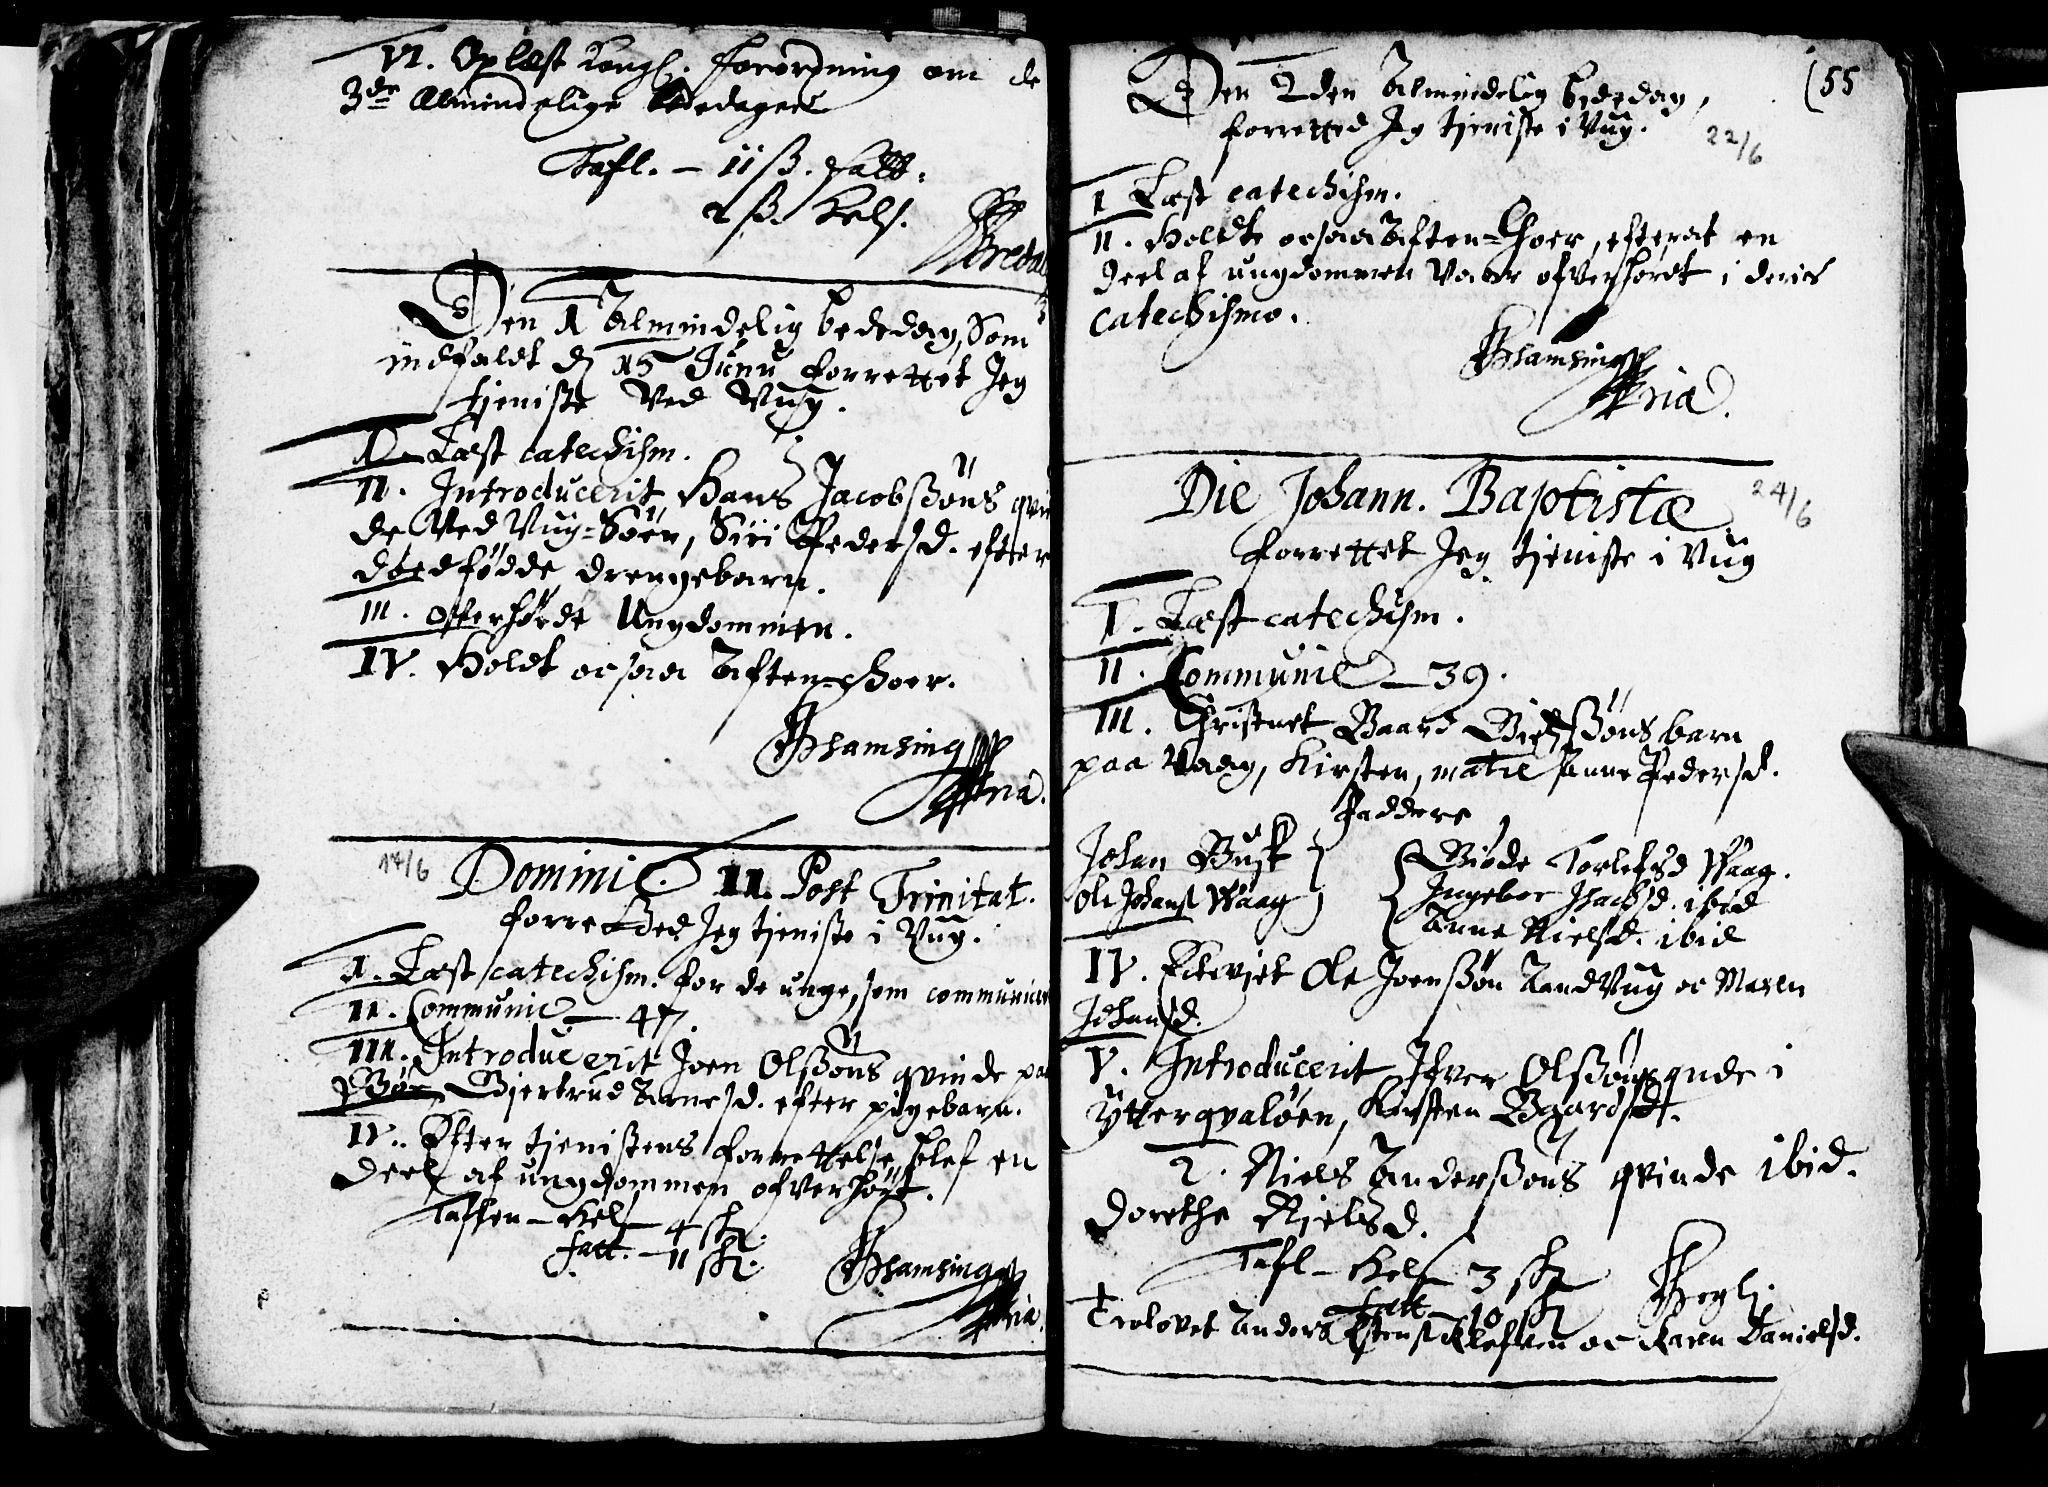 VI. Oplæst Kongl. forordning om de
3de Almindelige bededager
Tafl. – 11 ß. fatt.
2 ß. Kels.
Bredal
Den 1 Almindelig bededag, Som
indfaldt d 15 Junii forrettet Jeg
tjeniste Ved Vug.
I. Læst catechism.
II. Introducerit Hans Jacobßøns qvin
de Ved Vug-Søen, Siri Pedersd. efter
dødfødde drengebarn.
III. Offverhørde Ungdommen.
IV. Holdt ocsaa Aften-Choer.
Hhamsing
mpria.
14/6
Dominic. II. Post Trinitat.
forretted Jeg tjeniste i Vug.
I. Læst catechism. for de unge, som communicer
II. Communic – 47.
III. Introducerit Joen Olßøns qvinde paa
Bøe, Gjertrud Arnesd. efter pigebarn.
IV. Efter tjenistens forrettelse blef en
deel af ungdommen ofverhørt.
Taflen – Kels – 4 sk.
fatt. – 11 sk.
Hhamsing
mpria.
(55
Den 2den Almindelig bededag,
forretted Jeg tjeniste i Vug.
22/6
I Læst catechism.
II. Holdte ocsaa Aften-Choer, efterat en
deel af ungdommen Vaar ofverhørdt i deris
catechismo.
Hhamsing
mpria.
Die Johann. Baptistæ
24/6
forrettet Jeg tjeniste i Vug
I. Læst catechism.
II. Communic – 39.
III. Christnet Baard ßøns barn
paa Vaag, Kirsten, matre Anne Pedersd.
Faddere
Johan Busk
Ole Johans Waag
Giøde Torlefsd Waag.
Ingebor Isachsd. ibid
Anne Nielsd. ibid
IV. Ectevjet Ole Joenßøn SandVug oc Maren
Johansd.
V. Introducerit Ifver Olßøns qnde i
Ytterqvaløen, Kirsten Baardsdt.
2. Niels Anderßøns qvinde ibid.
Dorethe Njelsd.
Tafl – Kels – 3 sk
fatt – 10 sk
Trolovet Anders Kleften oc Karen Danielsd.